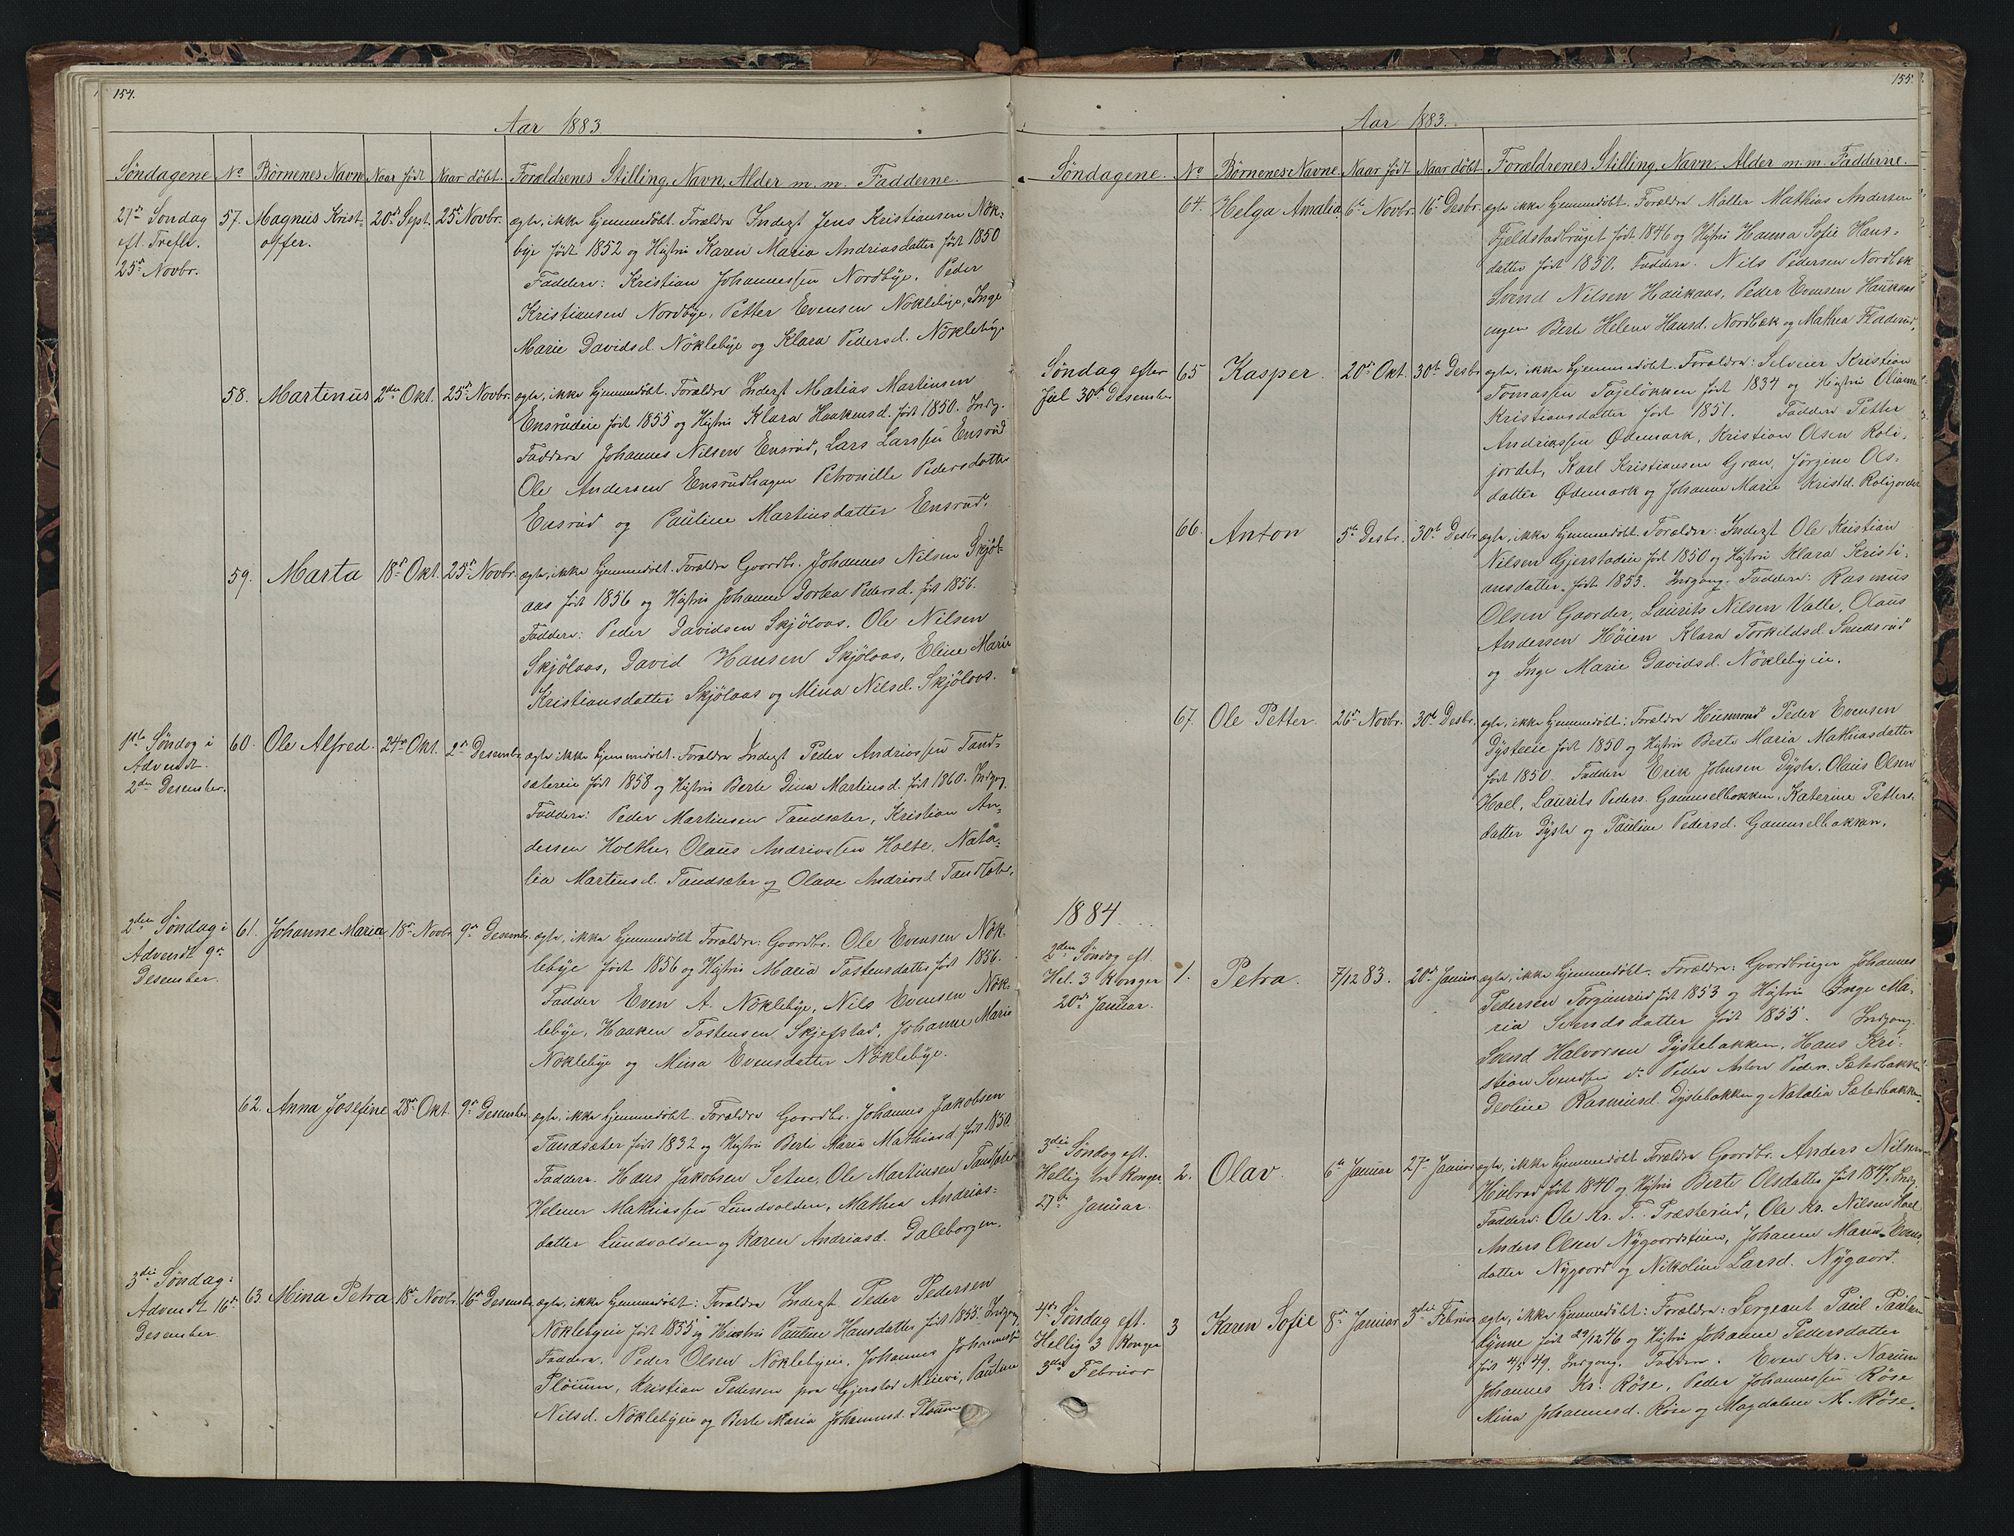 154.
Aar 1883
Søndagene No Børnenes Navn Naar født Naar døbt Forældrenes Stilling, Navn, Alder m. m. Fadderne.
27de Søndag eft. Trefh. 25de Novbr.
57. Magnus Krist-
offer. 20de Sept. 25de Novbr.
ægte, ikke hjemmedøbt. Forældre Inderst Jens Kristiansen Nøk-
bye født 1852 og Hustru Karen Maria Andriasdatter født 1850
Faddere: Kristian Johannessen Nordbye, Peder
Kristiansen Nordbye, Petter Evensen Nøklebye, Inge
Marie Davidsd. Nøklebye og Klara Pedersd. Nøklebye
58. Martinus 2den Okt. 25de Novbr.
ægte, ikke hjemmedøbt. Forældre Inderst Matias Martinsen
Ensrudeie født 1855 og Hustru Klara Haakensd. født 1850. Indg.
Faddere Johannes Nilsen Ensrud, Lars Larssen Ensrud
Ole Andersen Ensrudhagen Petronille Pedersdatter
Ensrud og Pauline Martinsdatter Ensrud.
59. Marta 18de Okt. 25de Novbr.
ægte, ikke hjemmedøbt. Forældre Goordbr. Johannes Nilsen Skjøl-
aas født 1856 og Hustru Johanne Dortea Pedersd. født 1856.
Faddere: Peder Davidsen Skjølaas, Ole Nilsen
Skjølaas, David Hansen Skjølaas, Eline Marie
Kristiansdatter Skjølaas og Mina Nilsd. Skjølaas.
1ste Søndag i
Advendt
2den Desember.
60. Ole Alfred. 24de Okt. 2den Desembr.
ægte ikke hjemmedøbt. Forældre Inderst Peder Andriassen Tand-
sætereie født 1858 og Hustru Berte Dina Martinsd. født 1860. Indgang
Faddere: Peder Martinsen Tandsæter, Kristian An-
dersen Holthe, Olaus Andriassen Holte, Nata-
lia Martinsd. Tandsæter og Olave Andriasd. Tandsæter.
2den Søndag i
Advendt 9de
Desember.
61. Johanne Maria 18de Novbr. 9de Desembr.
ægte, ikke hjemmedøbt Forældre: Goordbr. Ole Evensen Nøk-
lebye født 1856 og Hustru Maria Tostensdatter født 1856.
Fadder Even A. Nøklebye, Nils Evensen Nøk-
lebye, Haaken Tostensen Skjefstad, Johanne Marie
Nøklebye og Mina Evensdatter Nøklebye.
62. Anna Josefine 28de Okt. 9de Desember
ægte, ikke hjemmedøbt. Forældre Goordbr. Johannes Jakobsen
Tandsæter født 1832 og Hustru Berte Maria Mathiasd. født 1850.
Faddere. Hans Jakobsen Setne, Ole Martinsen Tandsæter
Helmer Mathiassen Lundvolden, Mathea Andrias-
datter Lundvolden og Karen Andriasd. Daleborgen.
3die Søndag i
Advendt 16de
Desember.
63. Mina Petra 18de Novbr. 16de Desembr.
ægte, ikke hjemmedøbt: Forældre Inderst Peder Pedersen
Nøklebyeie født 1855 og Hustru Pauline Hansdatter født 1853. Indgang,
Faddere. Peder Olsen Nøklebyeie, Johannes Johannessen
Pløium, Kristian Pedersen paa Gjerstad Meieri, Pauline
Nilsd. Nøklebyeie og Berte Maria Johannesd. Pløium
155.
Aar 1883.
Søndagene. No Børnenes Navne Naar født Naar døbt Forældrenes Stilling, Navn, Alder m. m. Fadderne.
64. Helga Amalia 6te Novbr. 16de Desbr.
ægte ikke hjemmedøbt. Forældre Møller Mathias Andersen
Fjeldstadbruget født 1846 og Hustru Hanna Sofie Hans-
datter født 1850. Faddere. Nils Pedersen Nordbæk
Svend Nilsen Haukaas, Peder Evensen Haukaas
ungm Berte Helene Hansd. Nordbæk og Mathea Fladerud.
Søndag efter
Jul 30te Desember
65 Kasper. 20de Okt. 30te Desbr.
ægte, ikke hjemmedøbt. Forældre: Selveier Kristian
Tomassen Tajeløkken født 1834 og Hustru Olianne
Kristiansdatter født 1851. Faddere Petter
Andriassen Ødemark, Kristian Olsen Roli-
jordet, Karl Kristiansen Gran, Jørgine Ols-
datter Ødemark og Johanne Marie Kristd. Roligordet
66. Anton 5te Desbr. 30te Desbr.
ægte, ikke hjemmedøbt. Forældre: Inderst Ole Kristian
Nilsen Gjerstadeie født 1850 og Hustru Klara Kristi-
ansdatter født 1853. Indgang. Faddere: Rasmus
Olsen Gaarder, Laurits Nilsen Valle, Olaus
Andersen Høien Klara Torkildsd. Sandsrud
og Inge Marie Davidsd. Nøklebyeie.
67. Ole Petter. 26de Novbr. 30te Desbr.
ægte, ikke hjemmedøbt: Forældre Husmand Peder Evensen
Dysteeie født 1850 og Hustru Berte Maria Mathiasdatter
født 1850. Faddere Erik Johnsen Dyste, Olaus Olsen
Hoel, Laurits Peders. Gammelbakken, Katerine Petters-
datter Dyste og Pauline Pedersd. Gammelbakken.
1884
2den Søndag eft.
Hel. 3 Konger
20de Januar.
1. Petra. 7/12 83. 20de Januar
ægte, ikke hjemmedøbt. Forældre: Goordbruger Johannes
Pedersen Torgunrud født 1853 og Hustru Inge Ma-
ria Svendsdatter født 1855. Indgang.
Svend Halvorsen Dystebakken, Hans Kri-
stian Svendsen do Peder Anton Peders. Sæterbakken
Deoline Rasmusd. Dystebakken og Natalia Sæterbakken.
3die Søndag eft.
Hellig tre Konger
27de Januar.
2. Olav. 6te Januar 27de Januar
ægte, ikke hjemmedøbt Forældre Goordbr. Anders Nilsen
Huibrød født 1840 og Hustru Berte Olsdatter født 1847. Indg.
Faddere: Ole Kr. T. Præsterud, Ole Kr. Nilsen Hoel
Anders Olsen Nygaardstuen, Johanne Maria Evens-
datter Nygaard og Nikoline Larsd. Nygaard.
4de Søndag eft.
Hellig 3 Konger
3die Februar
3 Karen Sofie 8de Januar 3die Februar
ægte, ikke hjemmedøbt: Forældre: Sergeant Paul Paulsen
Lynne født 29/12 46 og Hustru Johanne Pedersdatter
født 4/5 49. Indgang. Faddere. Even Kr. Narum
Johannes Kr. Røse, Peder Johannessen Røse
Mina Johannesd. Røse og Magdalene A. Røse.